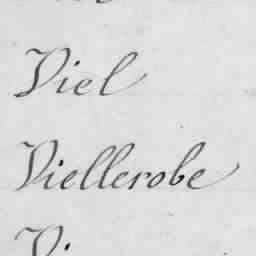 Viel
Viellerobe